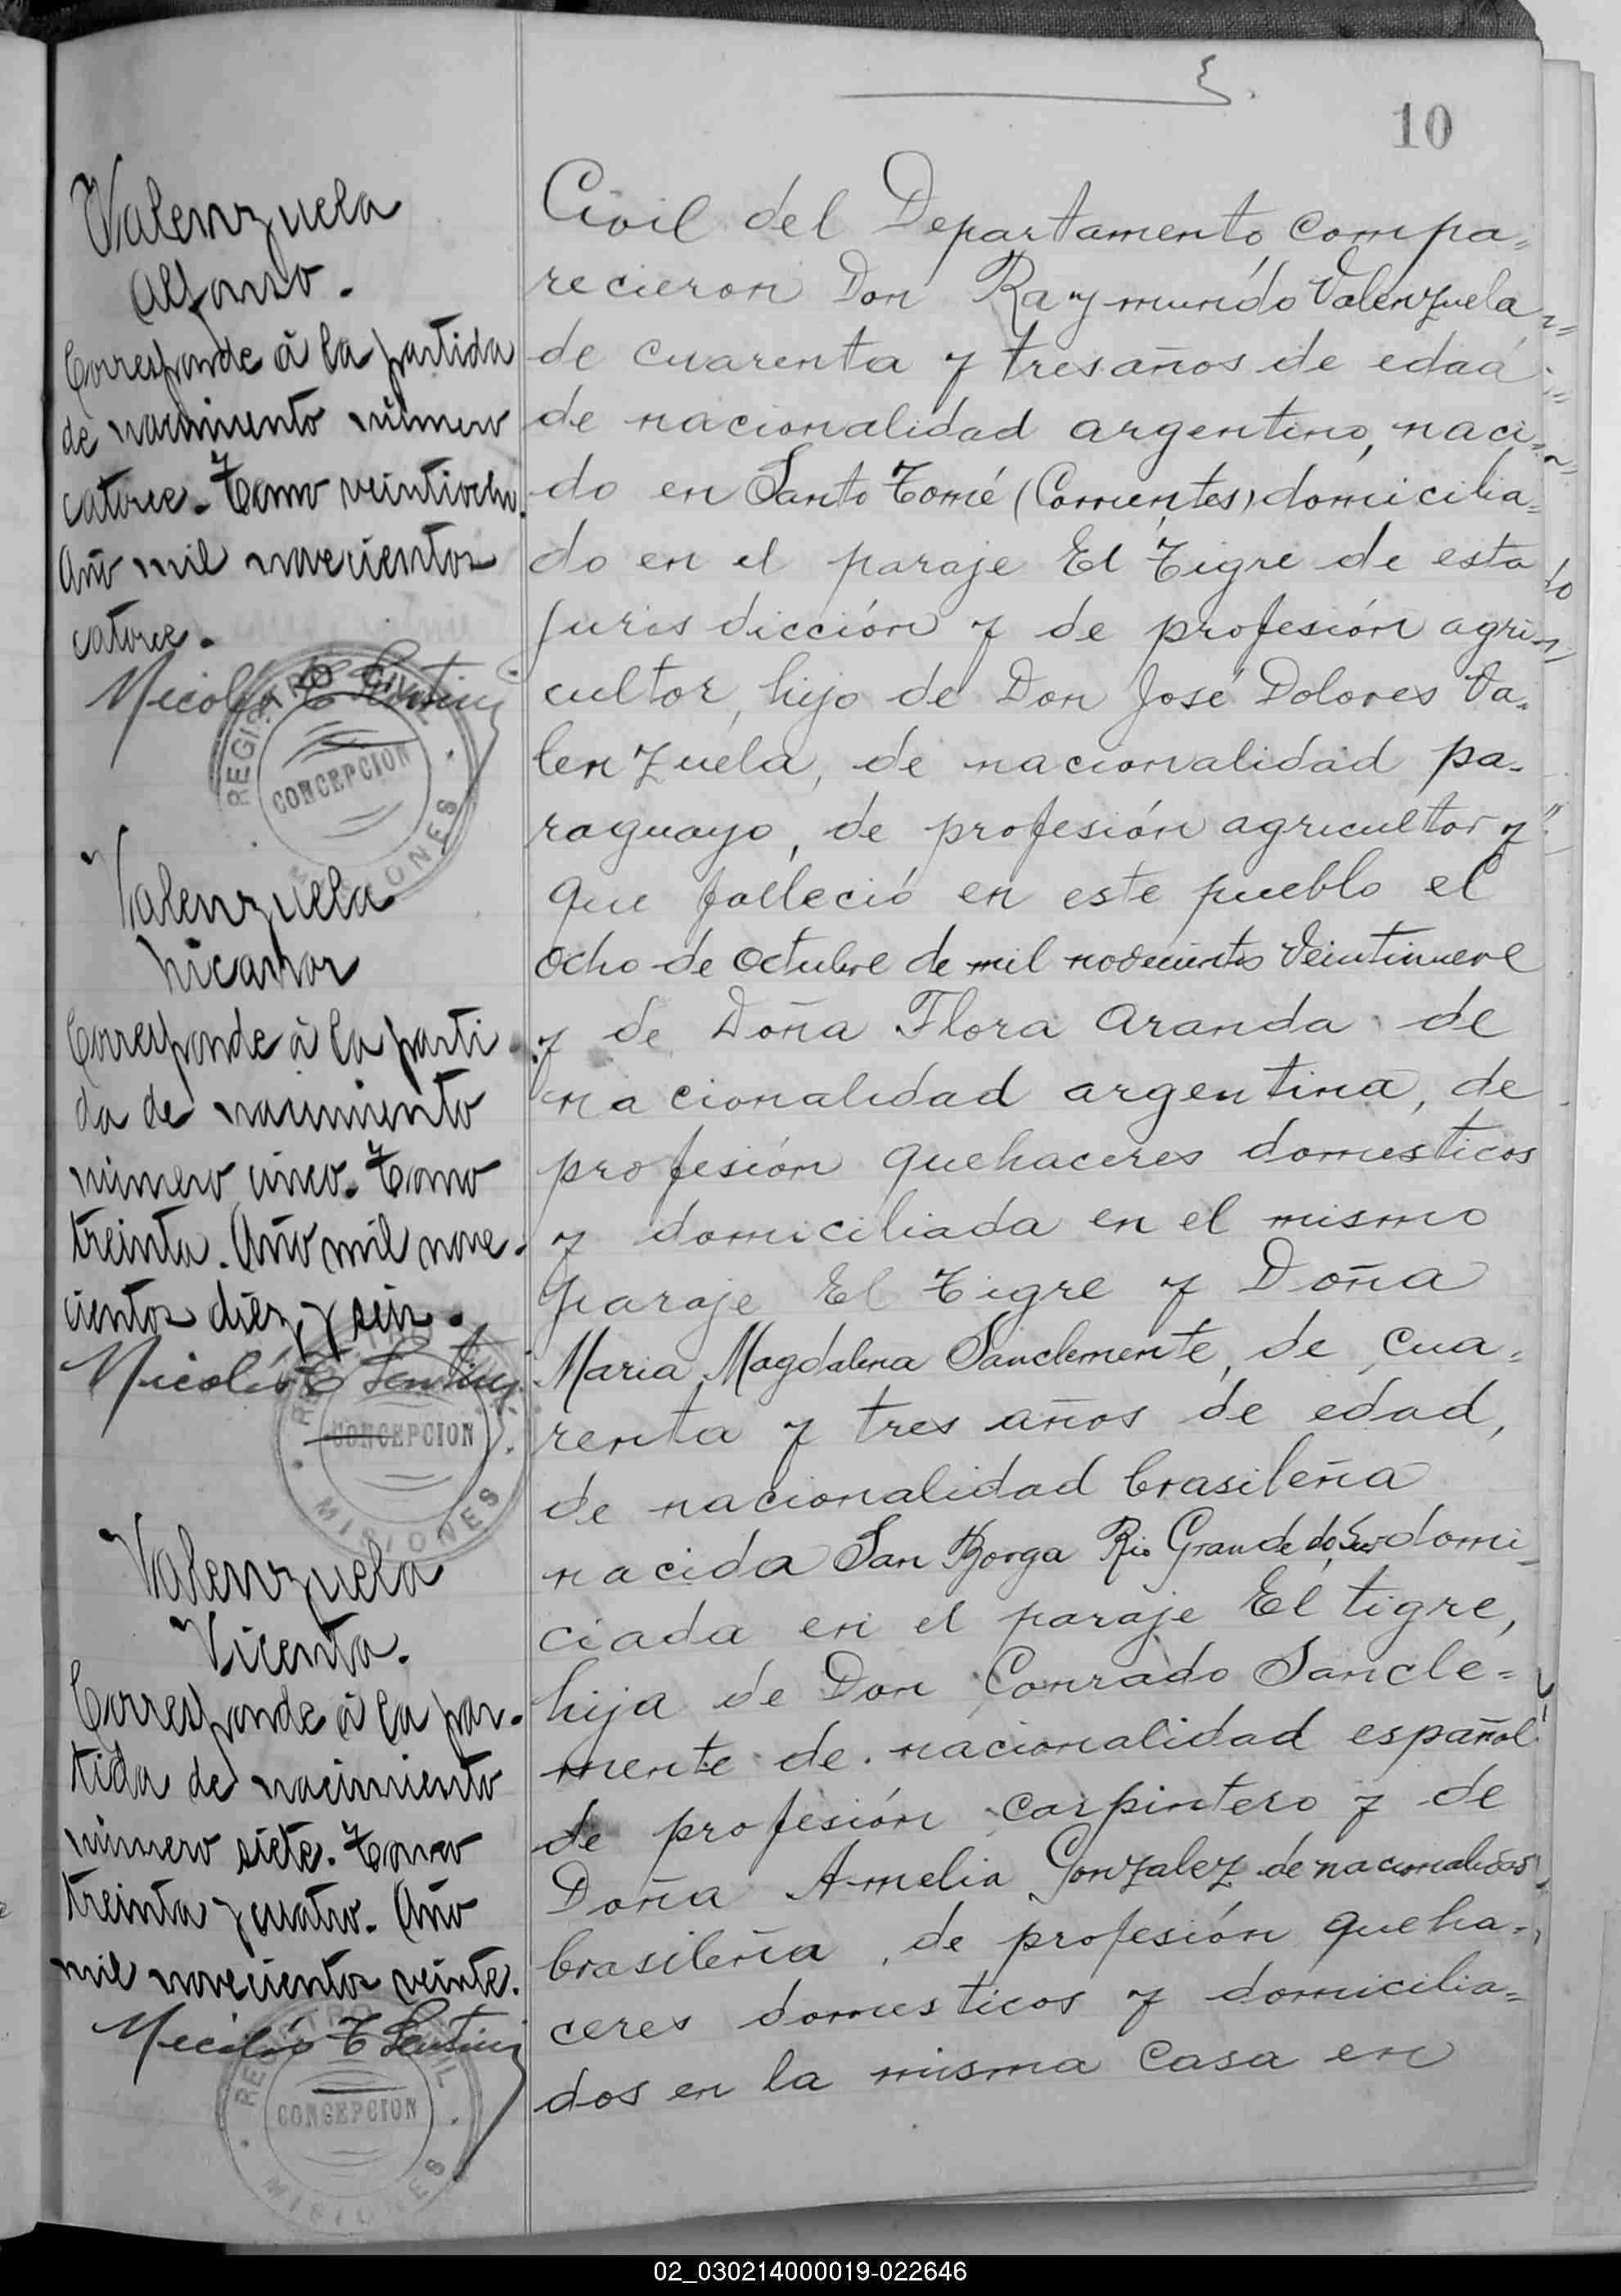 10
Valenzuela
Alfonso.
Corresponde á la partida
de nacimiento número
catorce. Tomo veintiocho.
Año mil novecientos
catorce.
REGISTRO CIVIL
CONCEPCION
MISIONES
Valenzuela
Nicanor
Corresponde á la parti
da de nacimiento
número cinco. Tomo
treinta. Año mil nove-
cientos diez y seis.
CONCEPCION
MISIONES
Valenzuela
Vicenta.
Corresponde á la par-
tida de nacimiento
número siete. Tomo
treinta y cuatro. Año
mil novecientos veinte.
REGISTRO CIVIL
CONCEPCION
MISIONES
Civil del Departamento, compa=
recieron Don Raymundo Valenzuela
de cuarenta y tres años de edad
de nacionalidad argentino, naci-
do en Santo Tomé (Corrientes), domicilia=
do en el paraje El Tigre de esta
jurisdicción y de profesión agri=
cultor, hijo de Don José Dolores Va-
lenzuela, de nacionalidad pa-
raguayo, de profesión agricultor y
que falleció en este pueblo el
ocho de Octubre de mil novecientos veintinueve
y de Doña Flora Aranda de
nacionalidad argentina, de
profesión quehaceres domesticos
y domiciliada en el mismo
paraje El Tigre y Doña
Maria Magdalena Sanclemente, de cua=
renta y tres años de edad,
de nacionalidad brasileña
nacida San Borga Rio Grande do Sur domi=
ciada en el paraje El tigre,
hija de Don Conrado Sancle=
mente de nacionalidad español
de profesión carpintero y de
Doña Amelia Gonzalez de nacionalidad
brasileña, de profesión queha-
ceres domesticos y domicilia=
dos en la misma casa en
02_030214000019-022646